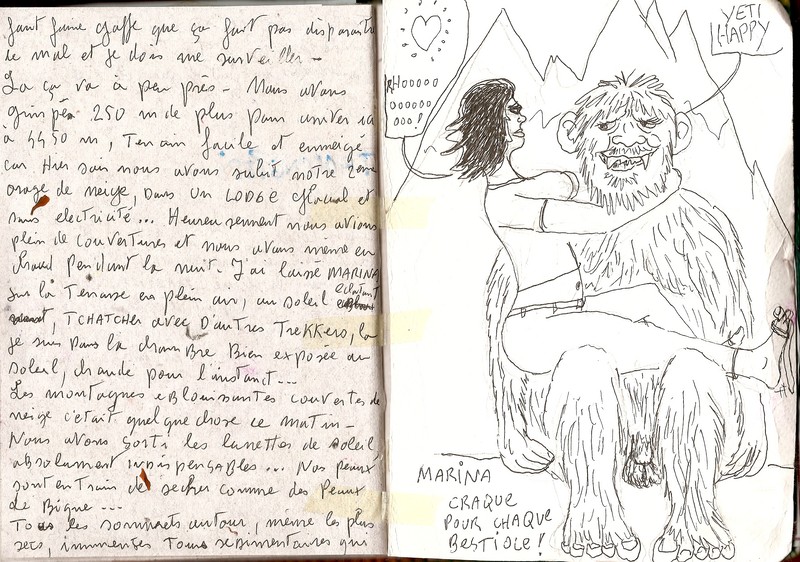 faut faire gaffe que ça fait pas disparaitre
le mal et je dois me surveiller -
La ça va à peu près - Nous avons
grimpé 250 m de plus pour arriver ici
à 4450 m, Terrain facile et enneigé
car Hier soir nous avons subit notre 2ème
orage de neige, Dans UN LODGE Glacial et
sans electricité... Heureusement nous avions
plein de couvertures et nous avons même eu
chaud Pendant la nuit. J'ai laissé MARINA
sur la Terrasse en plein air, au soleil eclatant
, TCHATCHER avec D'autres TREKKERS, la
je suis Dans la chambre Bien exposée au
soleil, chaude pour l'instant...
Les montagnes eblouissantes couvertes de
neige c'était quelque chose ce matin -
Nous avons sorti les lunettes de soleil
absolument indispensables... Nos peaux
sont en Train de secher comme des Peaux
de Bique ...
Tous les sommets autour, même les plus
secs, immenses Tous sedimentaires qui
RHOOOOO
OOOOOO
OOO!
YETI
HAPPY
MARINA
CRAQUE
POUR CHAQUE
BESTIOLE!